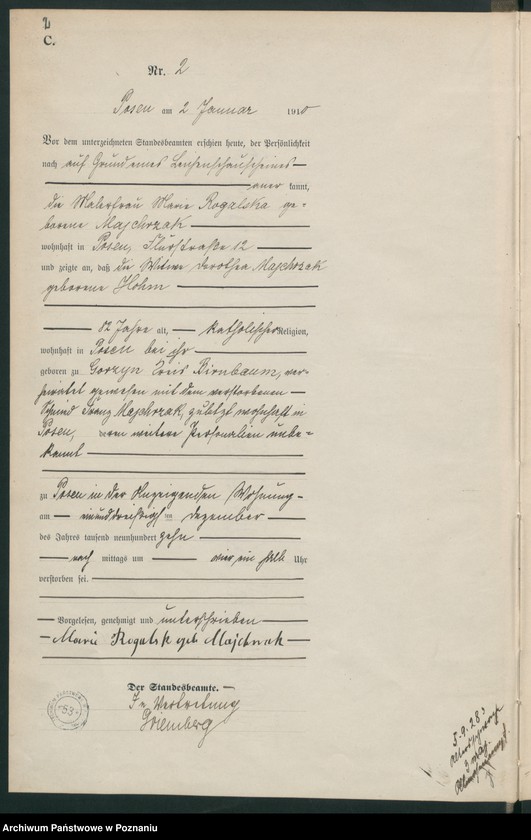 2
C.
Nr. 2
Posen am 2 Januar 1910
Vor dem unterzeichneten Standesbeamten erschien heute, der Persönlichkeit
nach auf Grund eines Leichenschauscheines
aner kannt,
die Malerfrau Marie Rogalska ge-
borene Majchrzak
wohnhaft in Posen, Flurstraße 12
und zeigte an, daß die Witwe Dorothea Majchrzak
geborene Hohm
82 Jahre alt, katholischer Religion,
wohnhaft in Posen bei ihr
geboren zu Gorzyn Kreis Birnbaum, ver-
heiratet gewesen mit dem verstorbenen
Franz Majchrzak, zuletzt wohnhaft in
Posen, weitere Personalien unbe-
kannt
zu Posen in der Anzeigenden Wohnung
am einunddreißigsten Dezember
des Jahres tausend neunhundert zehn
nach mittags um vier ein halb Uhr
verstorben sei.
Vorgelesen, genehmigt und unterschrieben
Marie Rogalsk geb Majchrzak
Der Standesbeamte.
In Vertretung
53
5.9.28
Archiwum Państwowe w Poznaniu